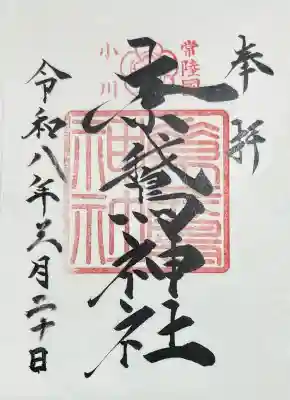 奉拝
常陸国
小川
素鵞神社
令和八年三月二十日